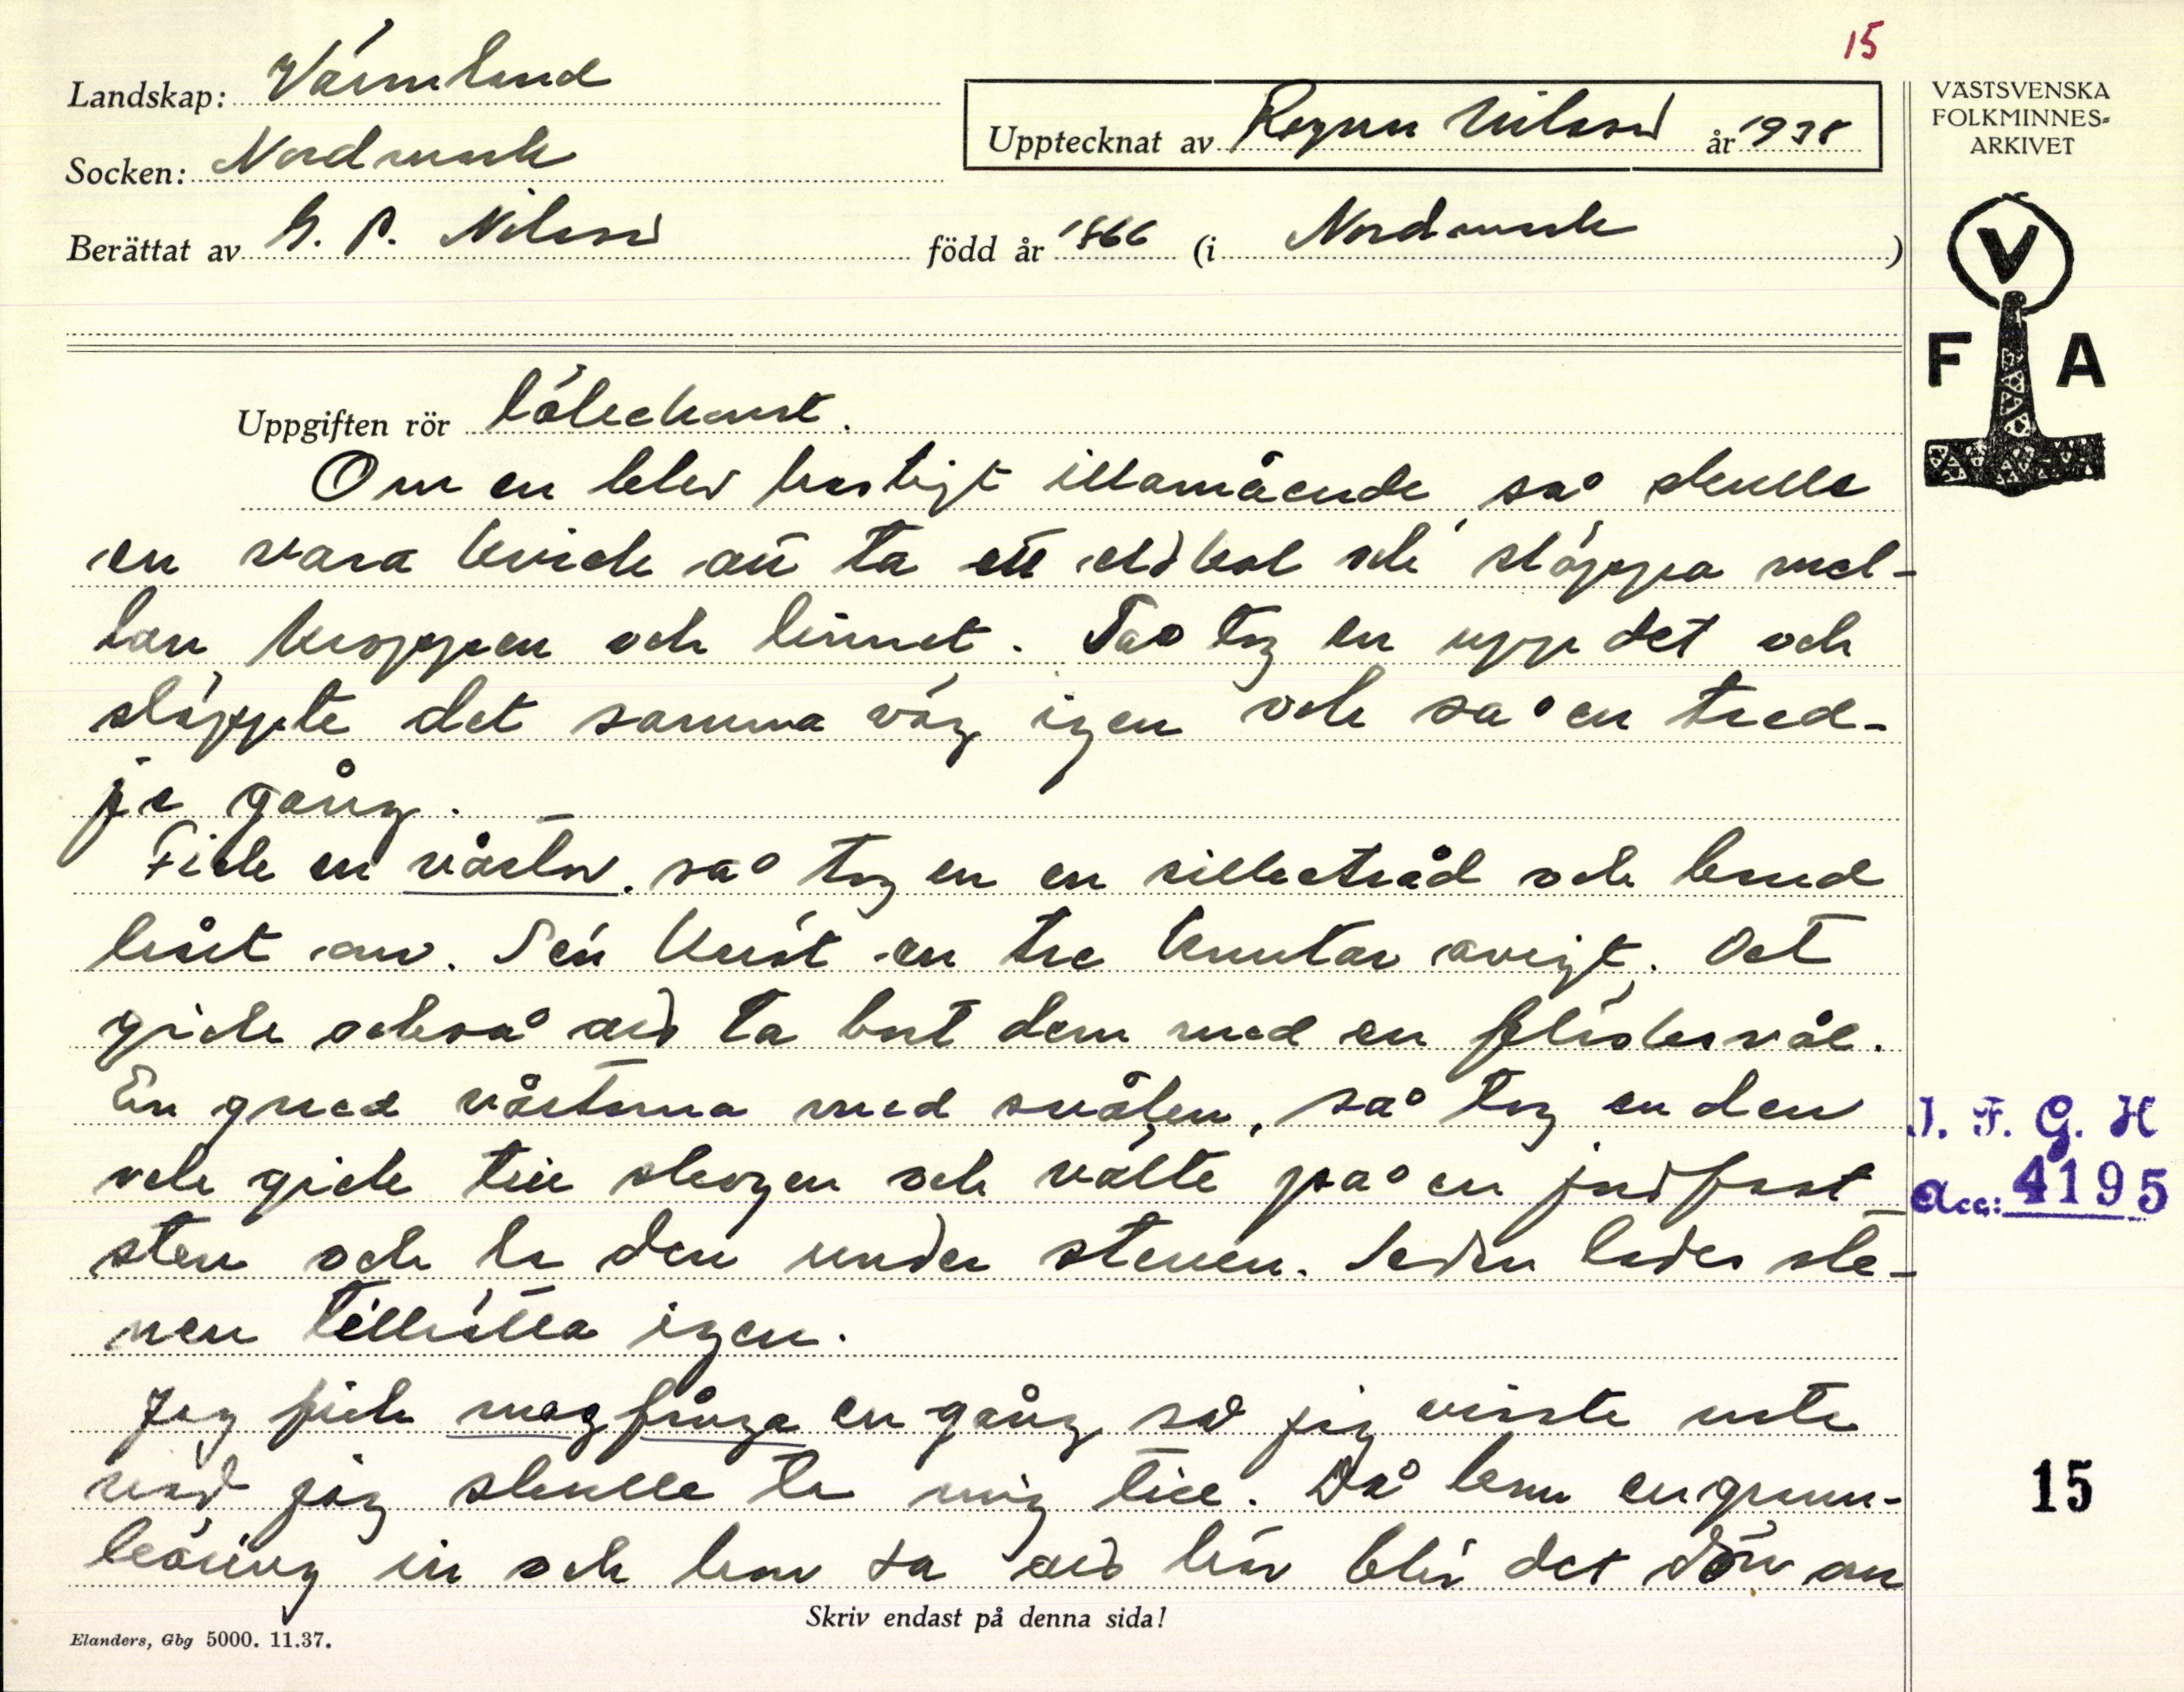 15
Landskap: Värmland
Socken: Nordmark
Berättat av G. P. Nilsson född år 1866 (i Nordmark )
Upptecknat av Ragnar Nilsson år 1938
VÄSTSVENSKA
FOLKMINNES-
ARKIVET
V
F A
Uppgiften rör läkekonst.
Om en blev hastigt illamående så skulle
en vara kvick att ta ett eldkol och släppa mel-
lan kroppen och linnet. Så tog en upp det och
släppte det samma väg igen och så en tred-
je gång.
Fick en vårtor, så tog en en silketråd och band
hårt om. Sen knöt en tre knutar avigt. Det
gick också att ta bort dem med en fläsksvål.
En gned vårtorna med svålen, så tog en den
och gick till skogen och välte på en jordfast
sten och la den under stenen. Sedan lades ste-
nen tillrätta igen.
Jag fick magfrånga en gång så jag visste inte
vad jag skulle ta mig till. Då kom en
in och han sa att här blir det
Skriv endast på denna sida!
Elanders, Gbg 5000. 11.37.
I. F. G. H
Acc: 4195
15